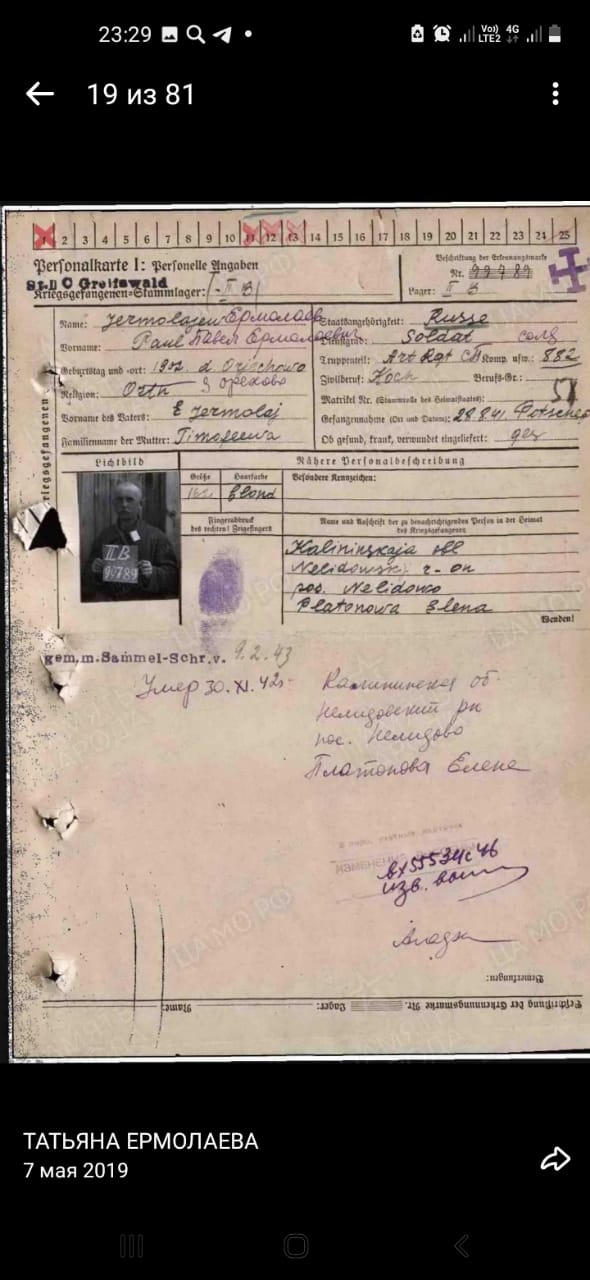 23:29
Vo) LTE2 4G
19 из 81
1 2 3 4 5 6 7 8 9 10 11 12 13 14 15 16 17 18 19 20 21 22 23 24 25
Personalkarte I: Personelle Angaben
St. II C Greifswald
Kriegsgefangenen-Stammlager: II B
Beschriftung der Erkennungsmarke
Nr. 99789
Lager: II B
Name: Jermolajew Ермолаев
Vorname: Paul Павел Ермолаевич
Geburtstag und -ort: 1902. d. Orjechowo
д Орехово
Religion: Orth
Vorname des Vaters: E Jermolaj
Familienname der Mutter: Timofeewa
Staatsangehörigkeit: Russe
Dienstgrad: Soldat солд
Truppenteil: Art Rgt Komp. usw.: 882
Zivilberuf: Koch Berufs-Gr.:
Matrikel Nr. (Stammrolle des Heimatstaates):
Gefangennahme (Ort und Datum): 28 8 41.
Ob gesund, krank, verwundet eingeliefert: ges
Kriegsgefangenen
Lichtbild
Nähere Personalbeschreibung
Größe Haarfarbe Besondere Kennzeichen:
162 blond
Fingerabdruck des rechten! Zeigefingers
Name und Anschrift der zu benachrichtigenden Person in der Heimat des Kriegsgefangenen
II B
Kalininskaja obl
Nelidowski r-on
pos. Nelidowo
Platonowa Elena
Wenden!
gem. m. Sammel-Schr. v. 9.2.43
Умер 30.XI.42г
Калининская об.
Нелидовский рн
пос. Нелидово
Платонова Елена
вх 55534с 46
Bemerkungen:
Beschriftung der Erkennungsmarke Nr. Lager: Name:
ЦАМО РФ
ТАТЬЯНА ЕРМОЛАЕВА
7 мая 2019